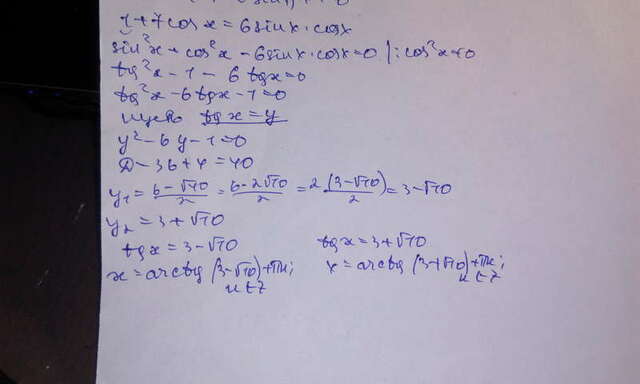 1+7cos x = 6sin x · cos x
sin²x + cos²x - 6sin x · cos x = 0 | : cos²x ≠ 0
tg²x - 1 - 6 tg x = 0
tg²x - 6 tg x - 1 = 0
Пусть tg x = y
y² - 6y - 1 = 0
D = 36 + 4 = 40
y₁ = (6 - √40)/2 = (6 - 2√10)/2 = 2(3 - √10)/2 = 3 - √10
y₂ = 3 + √10
tg x = 3 - √10 tg x = 3 + √10
x = arctg (3 - √10) + πn; x = arctg (3 + √10) + πn;
n ∈ Z n ∈ Z